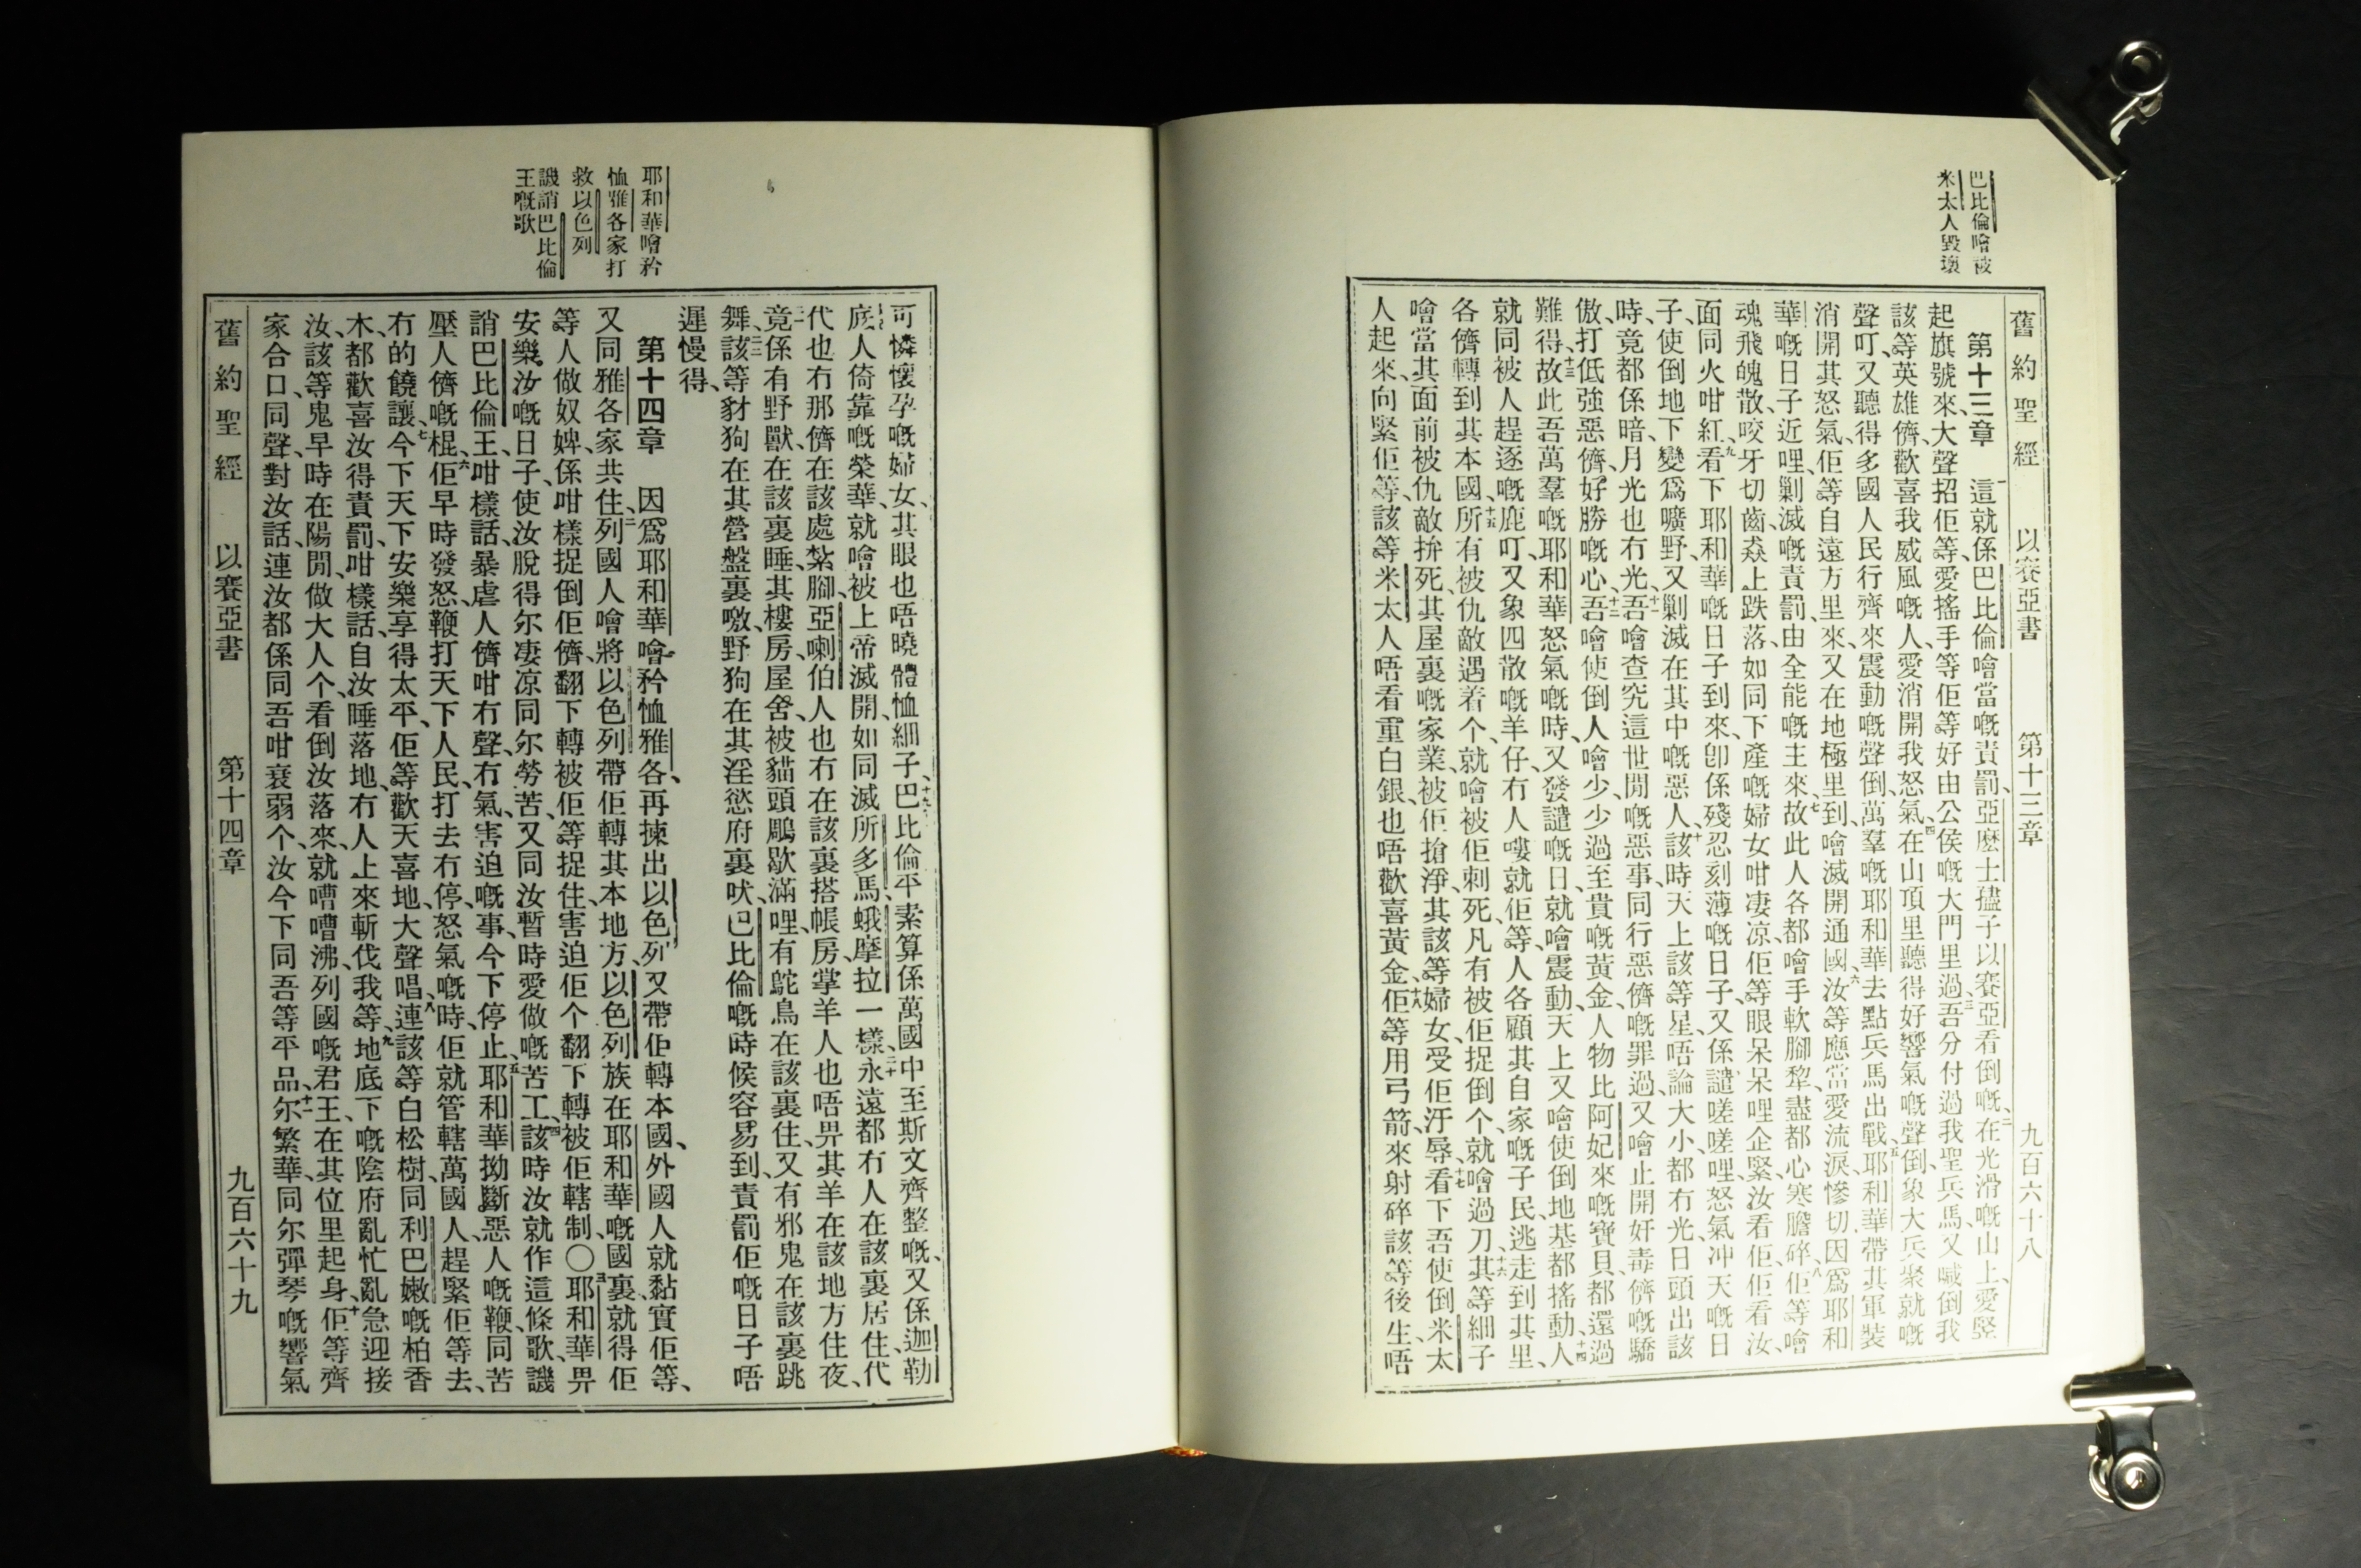 巴比倫噲被
米太人毀壞
舊約聖經 以賽亞書 第十三章 九百六十八
第十三章 一這就係巴比倫噲當嘅責罰、亞麼士孻子以賽亞看倒嘅、二在光滑嘅山上、愛豎
起旗號來、大聲招佢等、愛搖手等佢等好由公侯嘅大門里過、三吾分付過我聖兵馬、又喊倒我
該等英雄儕、歡喜我威風嘅人、愛消開我怒氣、四在山頂里聽得好響氣嘅聲、倒象大兵聚就嘅
聲叮、又聽得多國人民行齊來震動嘅聲、倒萬羣嘅耶和華去點兵馬出戰、五耶和華帶其軍裝
消開其怒氣、佢等自遠方里來、又在地極里到、噲滅開通國、六汝等應當愛流淚慘切、因爲耶和
華嘅日子近哩、剿滅嘅責罰由全能嘅主來、七故此人各都噲手軟腳犂、盡都心寒膽碎、八佢等噲
魂飛魄散、咬牙切齒、猋上跌落、如同下產嘅婦女咁凄凉、佢等眼呆呆哩企緊、汝看佢、佢看汝、
面同火咁紅、九看下耶和華嘅日子到來、卽係殘忍刻薄嘅日子、又係譴嗟嗟哩怒氣冲天嘅日
子、使倒地下變爲曠野、又剿滅在其中嘅惡人、十該時天上該等星、唔論大小都冇光、日頭出該
時、竟都係暗、月光也冇光、十一吾噲查究這世間嘅惡事、同行惡儕嘅罪過、又噲止開奸毒儕嘅驕
傲、打低強惡儕、好勝嘅心、十二吾噲使倒人噲少少過至貴嘅黃金、人物比阿妃來嘅寶貝、都還過
難得、十三故此吾萬羣嘅耶和華怒氣嘅時、又發譴嘅日、就噲震動天上、又噲使倒地基都搖動、十四人
就同被人趕逐嘅鹿叮、又象四散嘅羊仔、冇人嘍就佢等、人各顧其自家嘅子民、逃走到其里、
各儕轉到其本國、十五所有被仇敵遇着个、就噲被佢刺死、凡有被佢捉倒个、就噲過刀、十六其等細子
噲當其面前被仇敵拚死、其屋裏嘅家業、被佢搶淨、其該等婦女、受佢汙辱、十七看下吾使倒米太
人起來、向緊佢等、該等米太人唔看重白銀、也唔歡喜黃金、十八佢等用弓箭、來射碎該等後生、唔
耶和華噲矜
恤雅各家打
救以色列
譏誚巴比倫
王嘅歌
可憐懷孕嘅婦女、其眼也唔曉體恤細子、十九巴比倫平素算係萬國中至斯文齊整嘅、又係迦勒
底人倚靠嘅榮華、就噲被上帝滅開、如同滅所多馬、蛾摩拉一樣、二十永遠都冇人在該裏居住、代
代也冇那儕在該處紮腳、亞喇伯人也冇在該裏搭帳房、掌羊人也唔畀其羊在該地方住夜、
竟係有野獸、在該裏睡、其樓房屋舍、被貓頭鵰歇滿哩、有鴕鳥在該裏住、又有邪鬼在該裏跳
舞、該等豺狗在其營盤裏噭、野狗在其淫慾府裏吠、巴比倫嘅時候容易到、責罰佢嘅日子唔
遲慢得、
第十四章 因爲耶和華噲矜恤雅各、再揀出以色列、又帶佢轉本國、外國人就黏實佢等、
又同雅各家共住、二列國人噲將以色列帶佢轉其本地方、以色列族在耶和華嘅國裏、就得佢
等人做奴婢、係咁樣捉倒佢儕、翻下轉被佢等捉住、害迫佢个、翻下轉被佢轄制、〇三耶和華畀
安樂汝嘅日子、使汝脫得尔凄凉、同尔勞苦、又同汝暫時愛做嘅苦工、四該時汝就作這條歌、譏
誚巴比倫王、咁樣話、暴虐人儕咁冇聲冇氣、害迫嘅事、今下停止、五耶和華拗斷惡人嘅鞭、同苦
壓人儕嘅棍、六佢早時發怒、鞭打天下人民、打去冇停、怒氣嘅時、佢就管轄萬國人、趕緊佢等去、
冇的饒讓、七今下天下安樂享得太平、佢等歡天喜地、大聲唱、八連該等白松樹、同利巴嫩嘅柏香
木、都歡喜汝得責罰、咁樣話、自汝睡落地、冇人上來斬伐我等、九地底下嘅陰府亂忙亂急迎接
汝、該等鬼早時在陽間、做大人个、看倒汝落來、就嘈嘈沸、列國嘅君王、在其位里起身、十佢等齊
家合口、同聲、對汝話、連汝都係同吾咁衰弱个、汝今下同吾等平品、十一尔繁華、同尔彈琴嘅響氣
舊約聖經 以賽亞書 第十四章 九百六十九